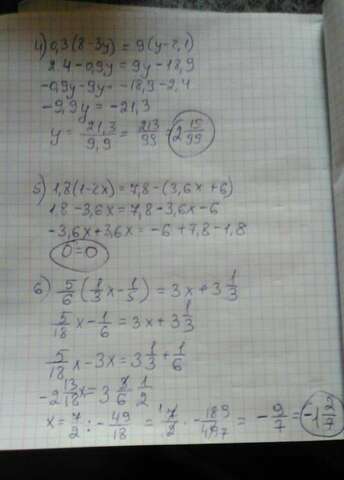 4) 0,3(8-3y) = 9(y-2,1)
2.4-0,9y = 9y-18,9
-0,9y-9y = -18,9-2,4
-9,9y = -21,3
y = 21,3/9,9 = 213/99 = 2 15/99
5) 1,8(1-2x) = 7,8-(3,6x+6)
1.8-3,6x = 7,8-3,6x-6
-3,6x+3,6x = -6+7,8-1,8
0=0
6) 5/6 (1/3 x - 1/5) = 3x + 3 1/3
5/18 x - 1/6 = 3x + 3 1/3
5/18 x - 3x = 3 1/3 + 1/6
-2 13/18 x = 3 1/2
x = 7/2 : -49/18 = 7/2 · - 18/49 = -9/7 = -1 2/7